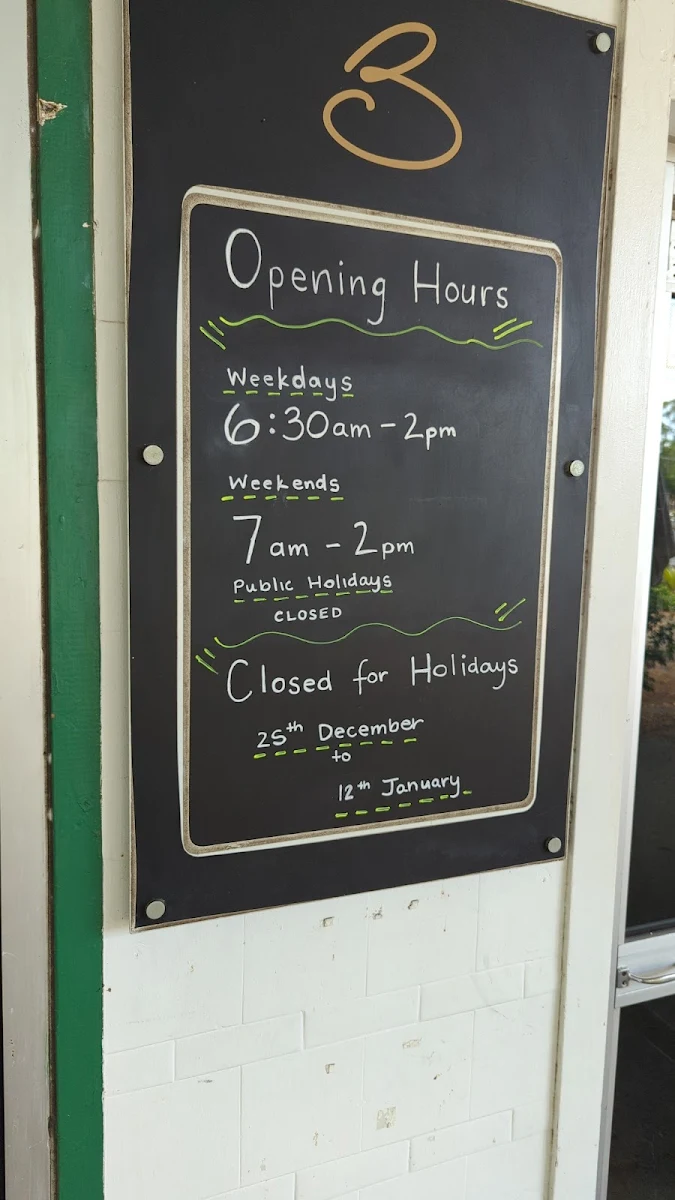 3
Opening Hours
Weekdays
6:30am - 2pm
Weekends
7am - 2pm
Public Holidays
CLOSED
Closed for Holidays
25th December
to
12th January